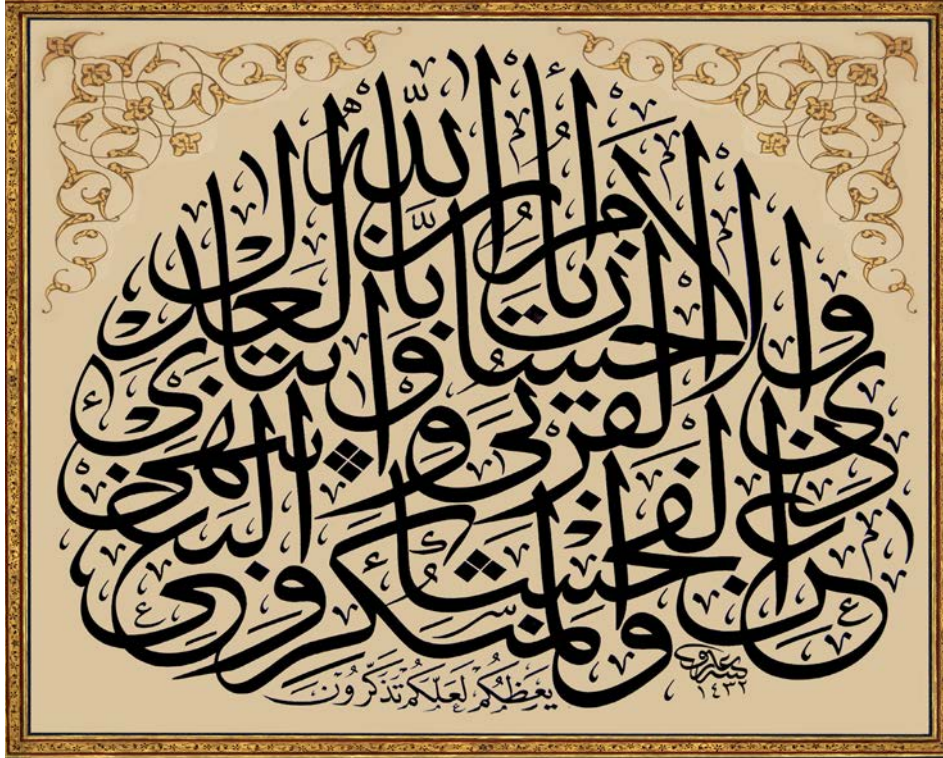 ان الله يأمر بالعدل والاحسان وايتائ ذى القربى وينهى عن الفحشاء والمنكر والبغى
يعظكم لعلكم تذكرون
١٤٣٢